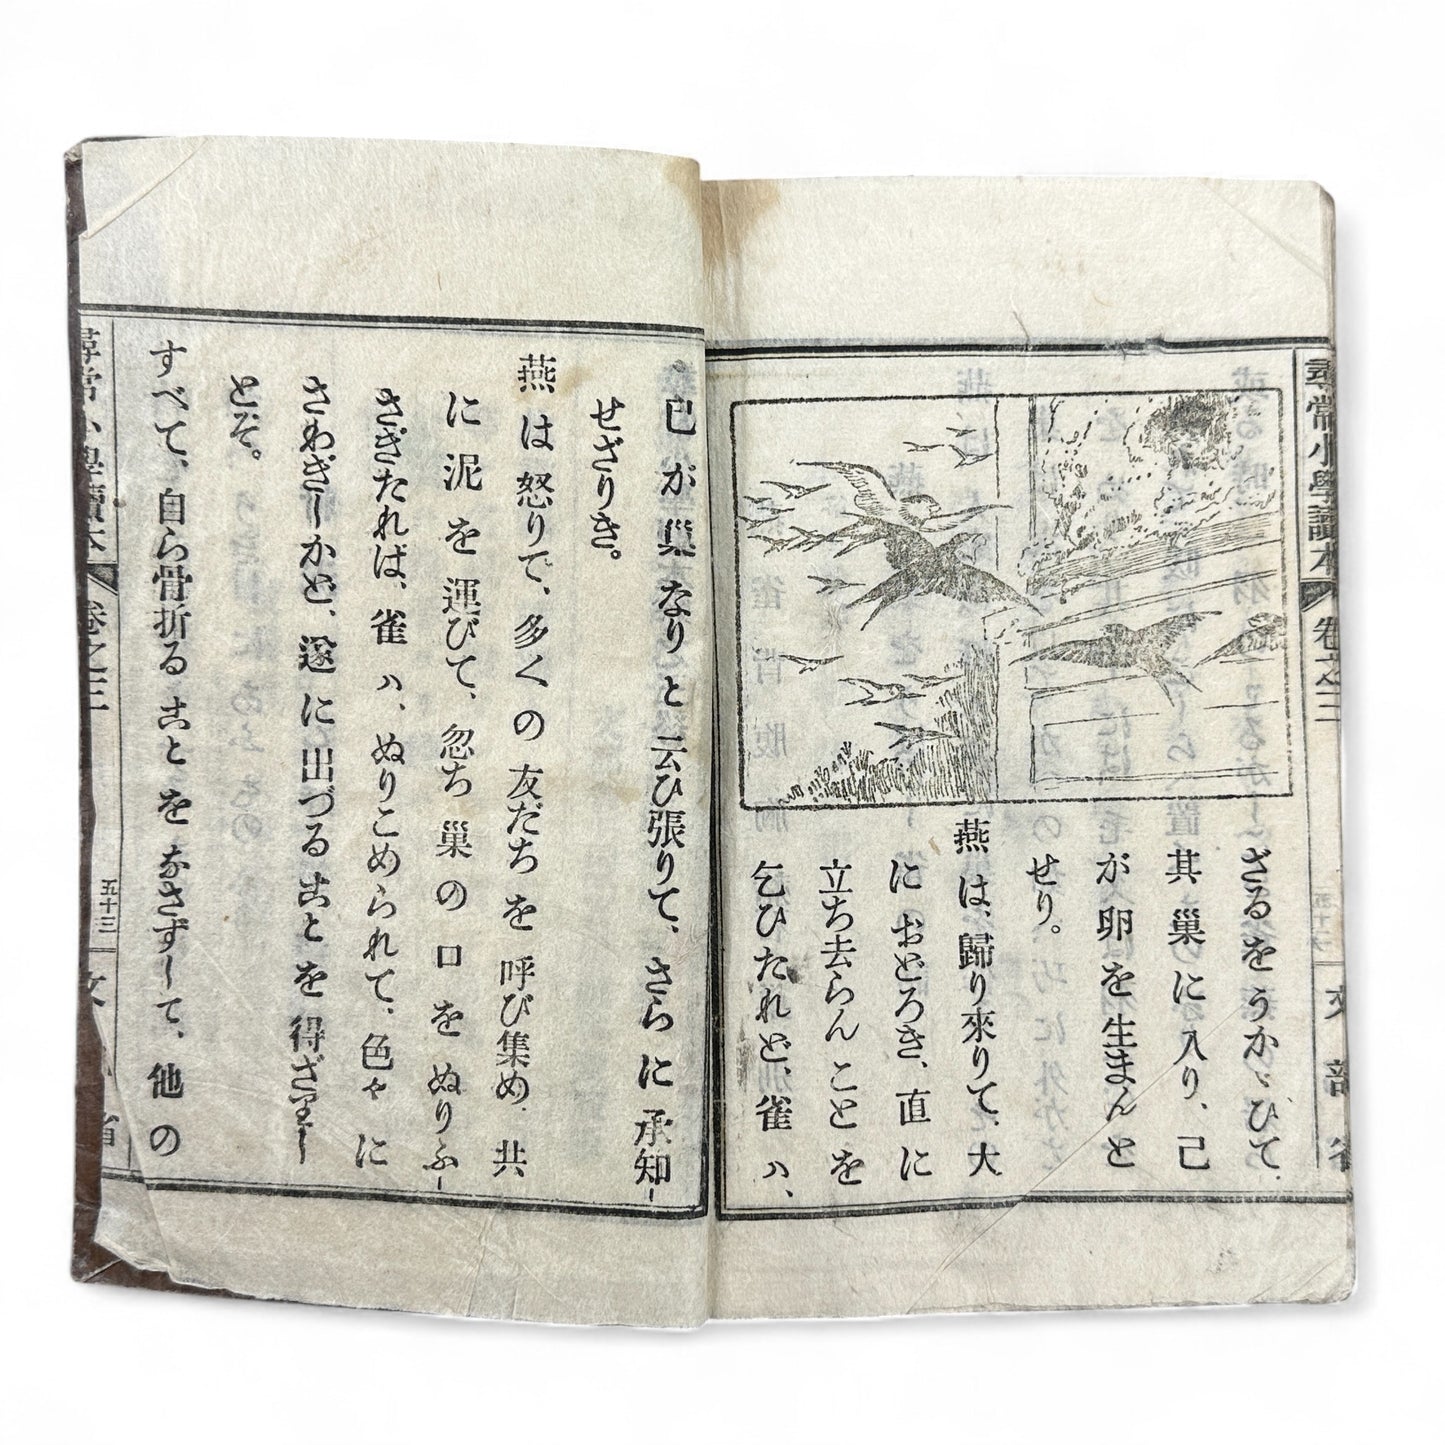 尋常小學讀本
卷之三
文部省
ざるをうかゞひて、
其巢に入り、己
が卵を生まんと
せり。
燕は、歸り來りて、大
におどろき、直に
立ち去らんことを
乞ひたれど、雀ハ、
己が巢なりと云ひ張りて、さらに承知
せざりき。
燕は怒りて、多くの友だちを呼び集め、共
に泥を運びて、忽ち巢の口をぬりふ
さぎたれば、雀ハ、ぬりこめられて、色々に
さわぎしかど、遂に出づることを得ざりし
とぞ。
すべて、自ら骨折ることをなさずして、他の
尋常小學讀本
卷之三
五十三
文 省